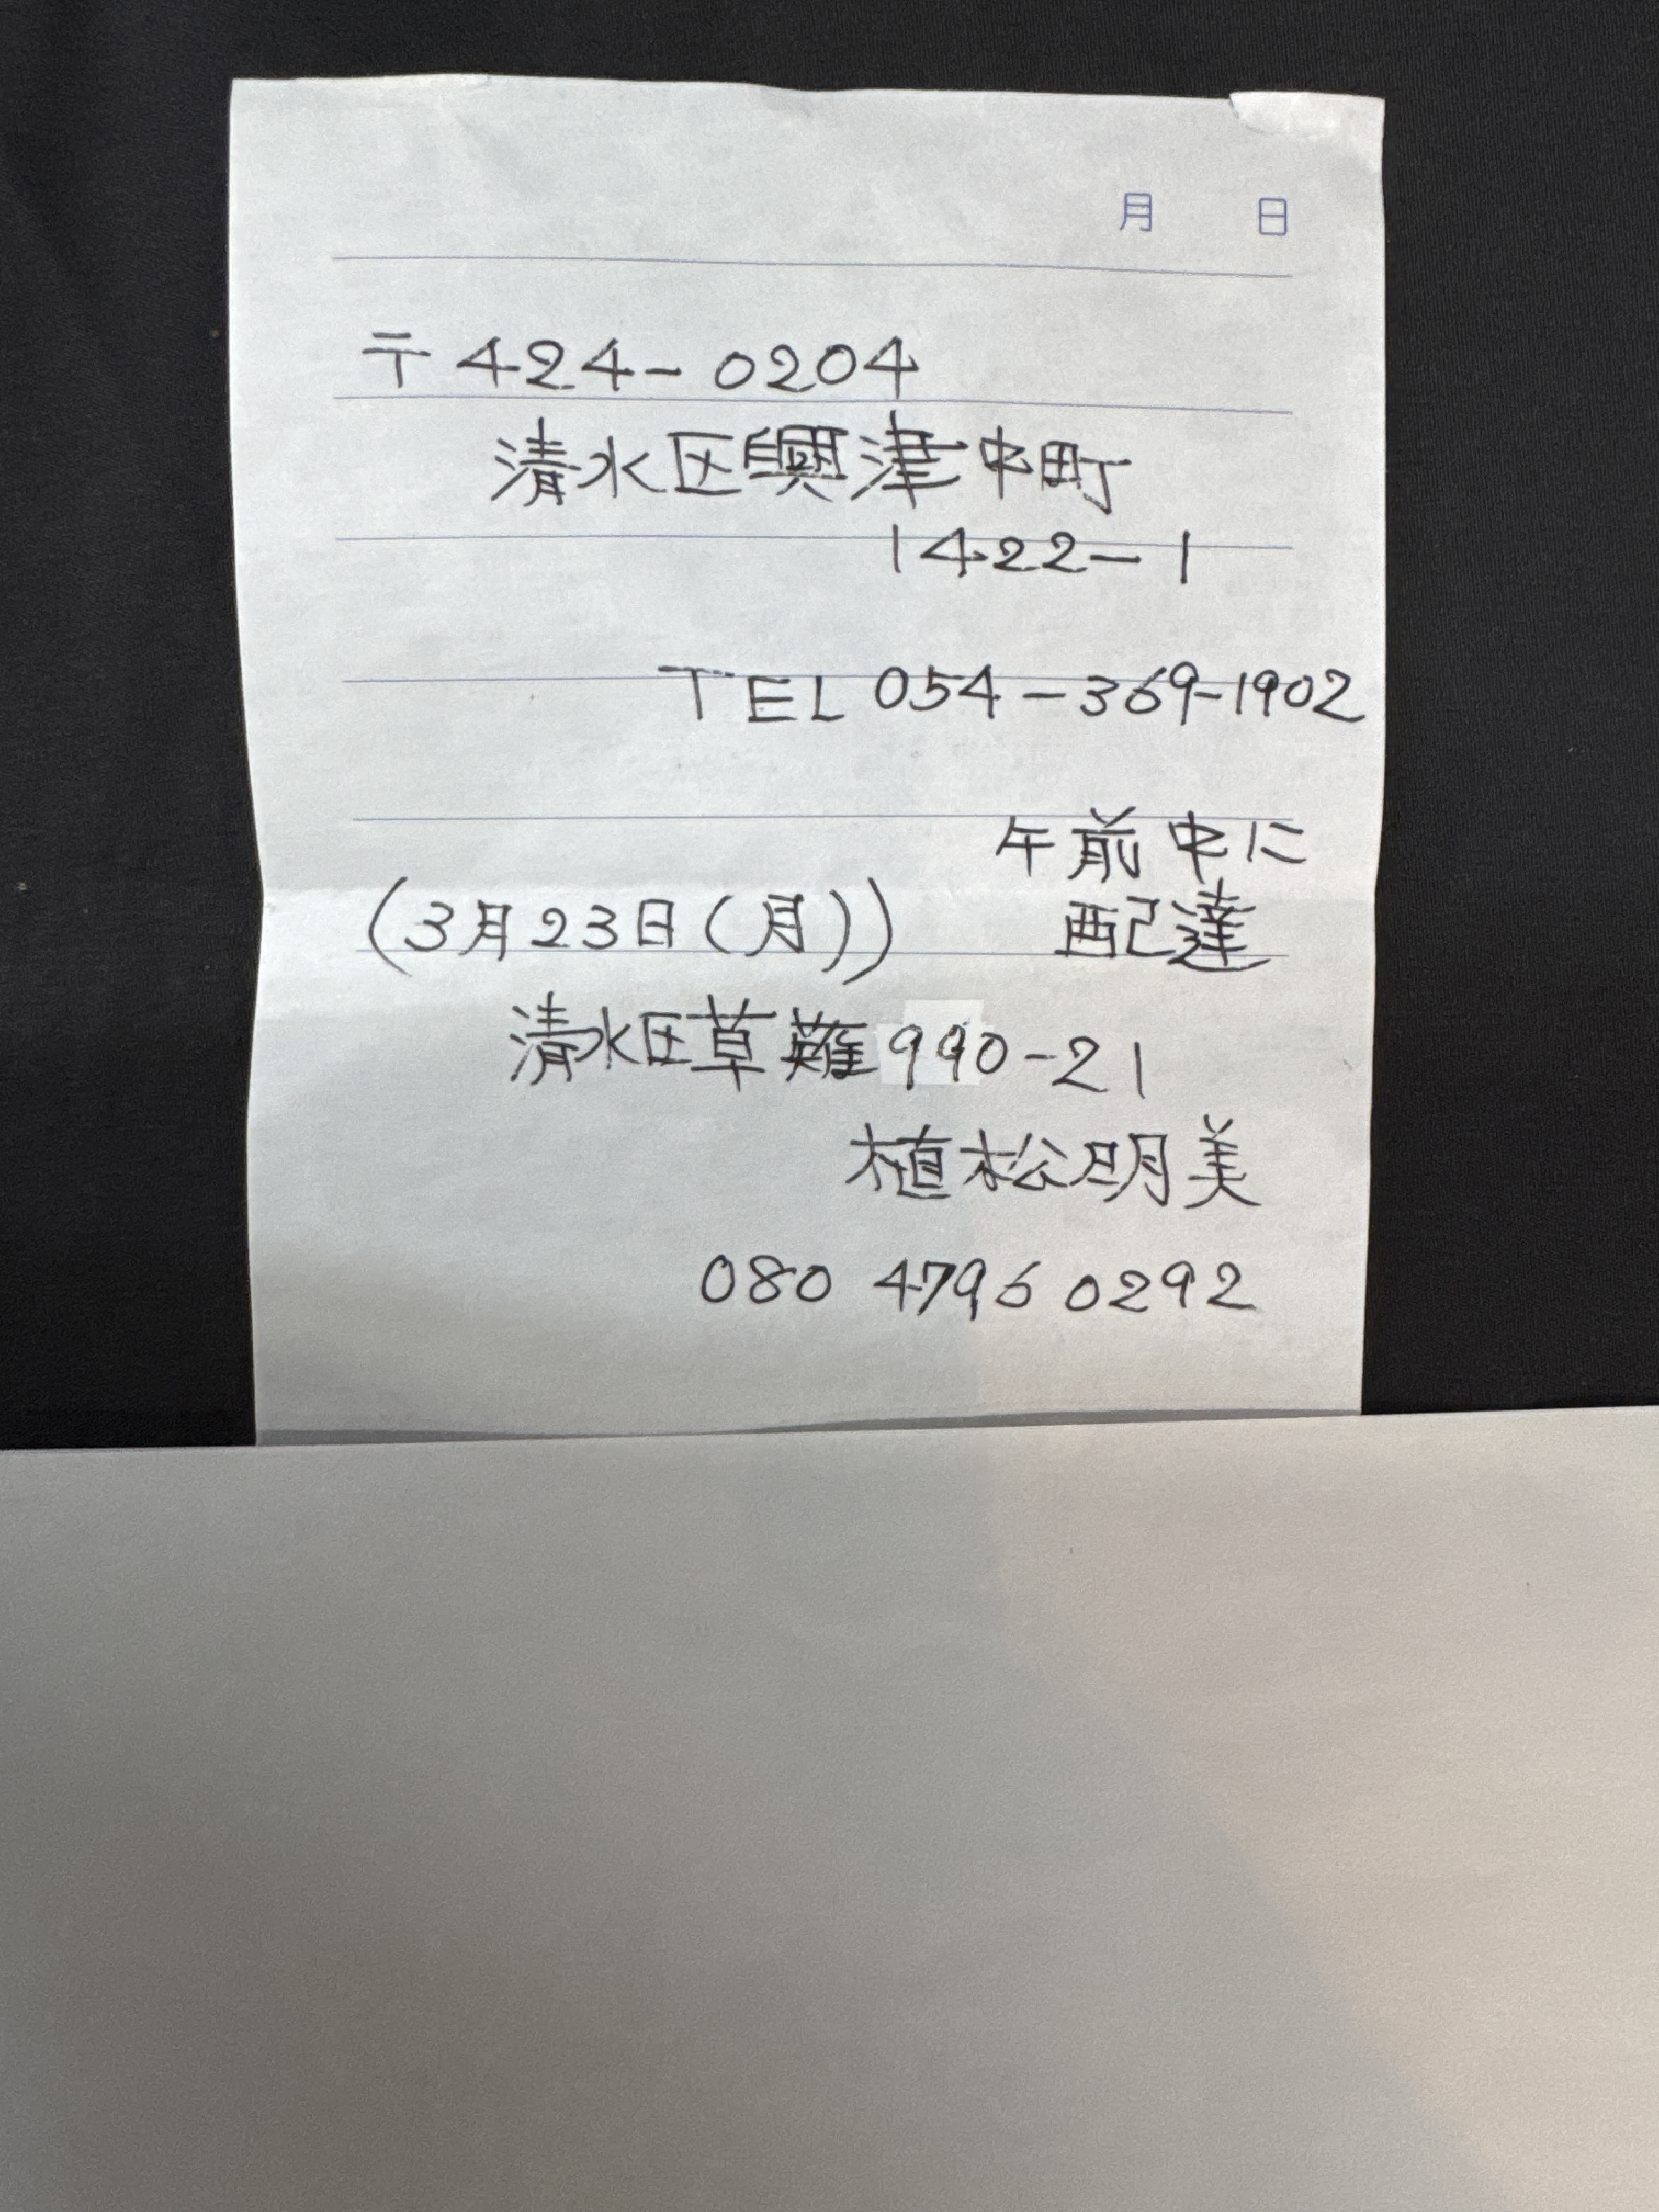 月 日
〒424-0204
清水区興津中町
1422-1
TEL 054-369-1902
午前中に
(3月23日(月)) 配達
清水区草薙990-21
植松明美
080 4796 0292